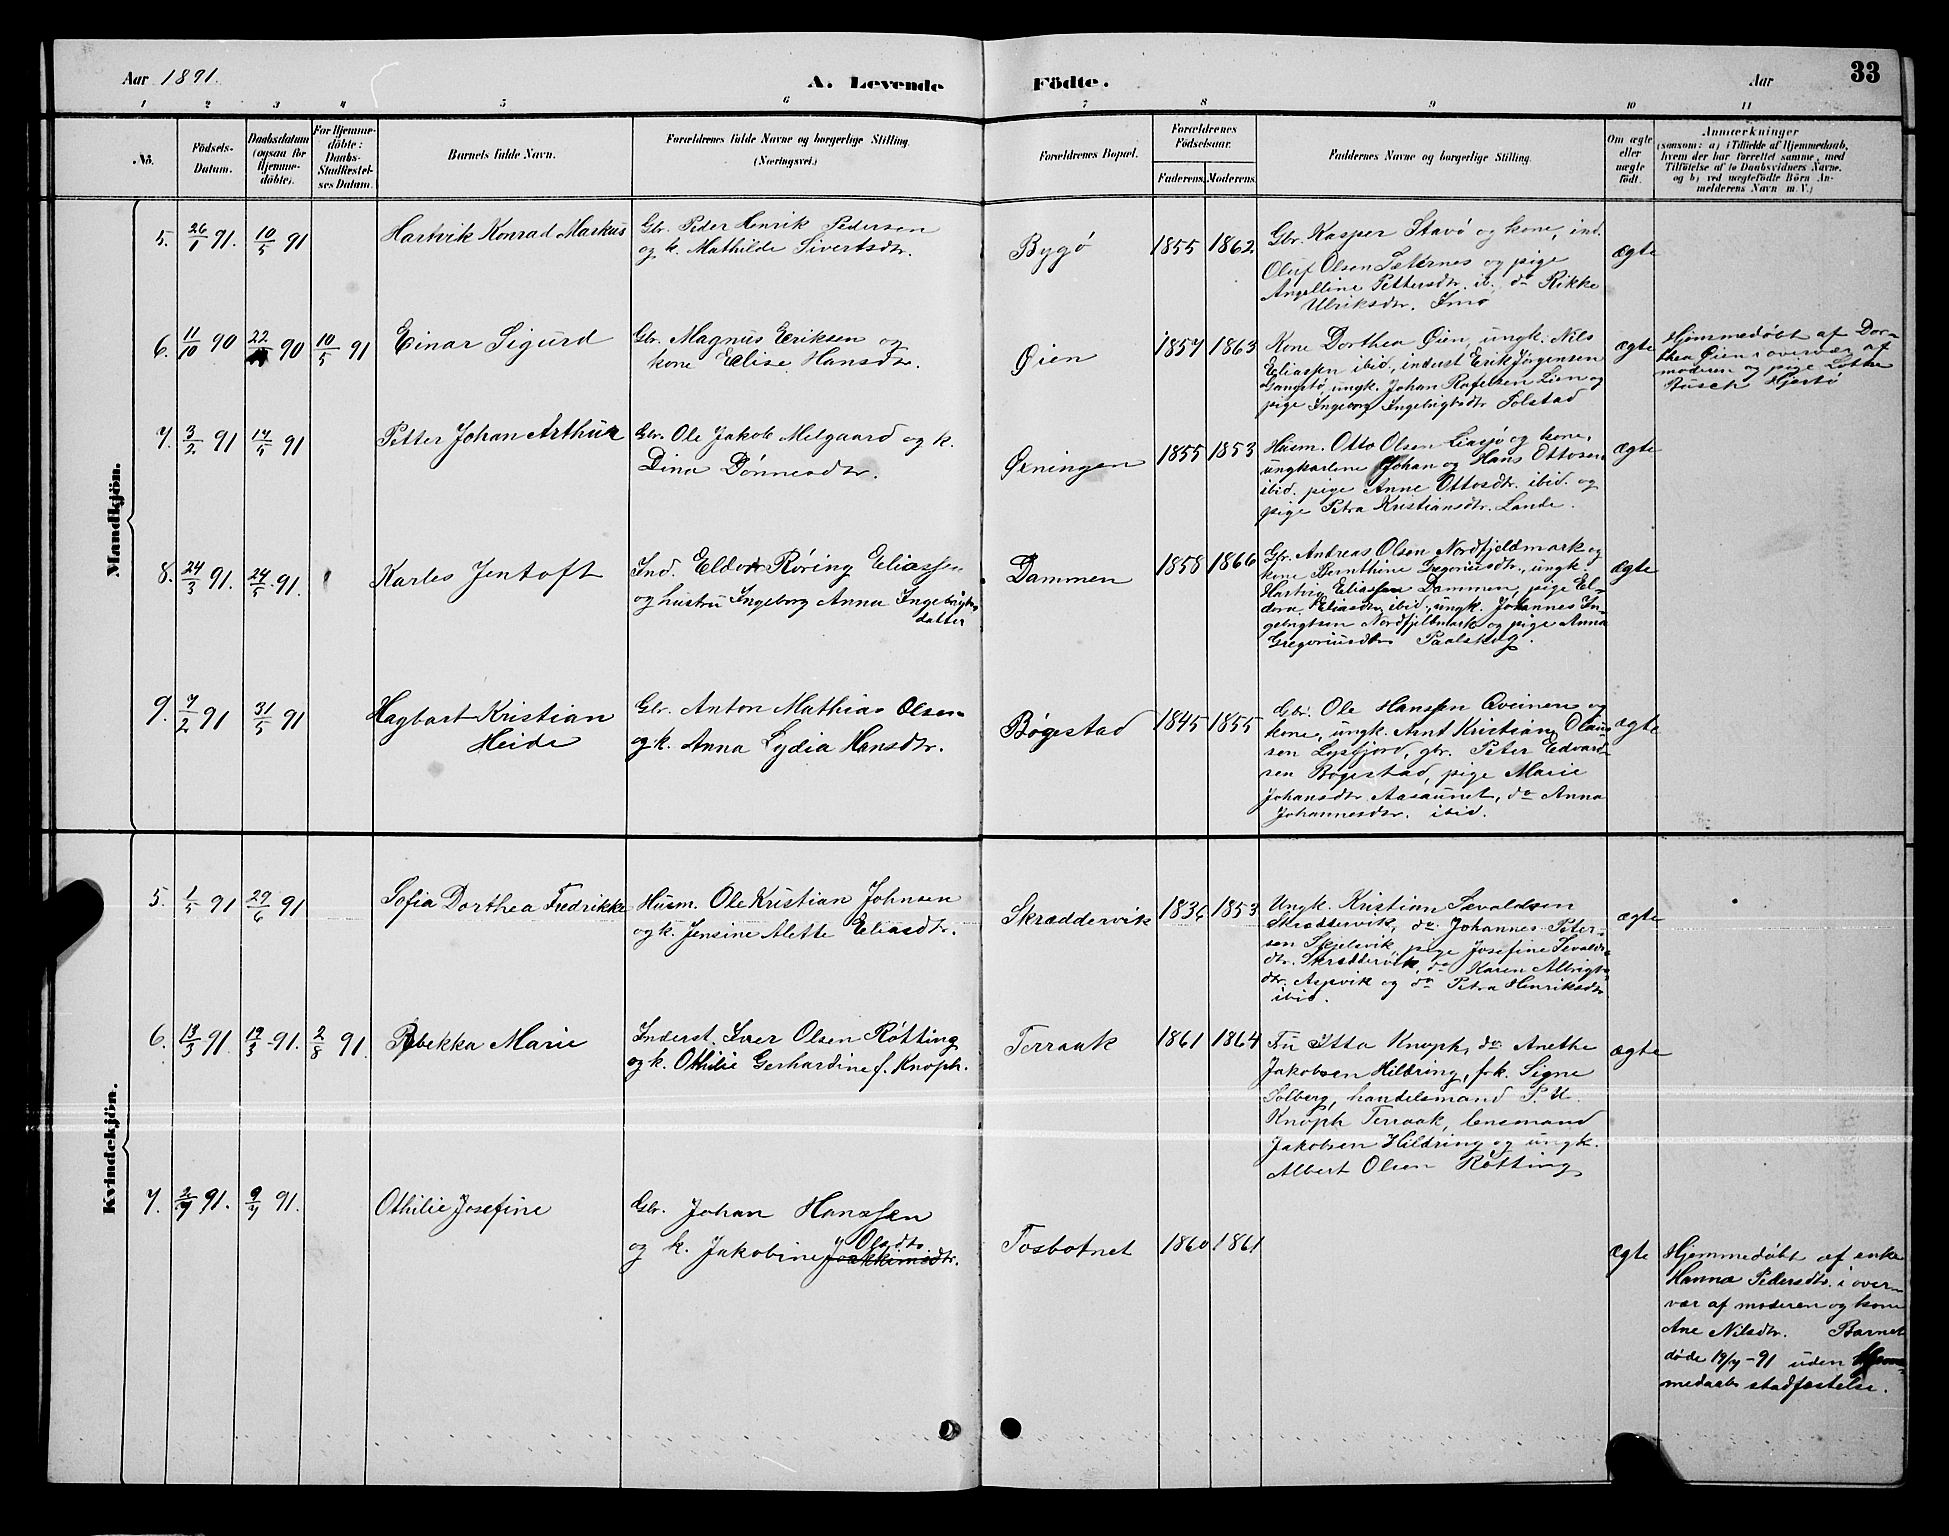 Aar 1891.
A. Levende Födte.
Aar
33
1 2 3 4 5 6 7 8 9 10 11
No.
Födsels-
Datum.
Daabsdatum
(ogsaa for
Hjemme-
döbte).
For Hjemme-
döbte:
Daabs-
Stadfæstel-
ses Datum.
Barnets fulde Navn.
Forældrenes fulde Navne og borgerlige Stilling.
(Næringsvei.)
Forældrenes Bopæl.
Forældrenes
Födselsaar.
Faderens. Moderens.
Faddernes Navne og borgerlige Stilling.
Om ægte
eller
uægte
födt.
Anmærkninger
(saasom: a) i Tilfælde af Hjemmedaab,
hvem der har forrettet samme, med
Tilföielse af to Daabsvidners Navne.
og b) ved uægtefödte Börn An-
melderens Navn m. V.)
Mandkjön.
5. 26/1 91. 10/5 91
Hartvik Konrad Markus
Gbr. Peder Henrik Pedersen
og k. Mathilde Sivertsdtr.
Bygø
1855 1862
Gbr. Kasper Stavø og kone, ind.
Oluf Olsen Sæternes og pige
Angelline Pettersdtr. ib., do Rikke
Ulriksdtr.
ægte
6. 11/10 90 22/ 90 10/5 91
Einar Sigurd
Gbr. Magnus Eriksen og
kone Elise Hansdtr.
Øien
1857 1863
Kone Dorthea Øien, ungk. Nils
Eliassen ibid., inderst Erik Jørgensen
Gangstø, ungk. Johan Rafelsen Lien og
pige Ingeborg Ingebrigtsdtr Solstad
ægte
Hjemmedøbt af Dor-
thea Øien i overvær af
moderen og pige Lothe
Busch Hjortø
7. 3/2 91 14/5 91
Petter Johan Arthur
Gbr. Ole Jakob Melgaard og k.
Dina Dønnesdtr.
Øxningen
1855 1853
Husm. Otto Olsen Liasjø og kone,
ungkarlene Johan og Hans Ottosen
ibid. pige Anne Ottosdtr. ibid. og
pige Petra Kristiansdtr. Lande.
ægte
8. 24/3 91. 24/5 91.
Karles Jentoft
Ind. Eldor Røring Eliassen
og hustru Ingeborg Anna Ingebrigts
datter
Dammen
1858 1866
Gbr. Andreas Olsen Nordfjeldmark og
kone Bernthine Gregoriusdtr., ungk.
Hartvig Eliassen Dammen, pige El-
dora Eliasdtr ibid., ungk. Johannes In-
gebrigtsen Nordfjeldmark og pige Anna
Gregoriusdtr Paalskog.
ægte
9. 7/2 91 31/5 91
Hagbart Kristian
Heide
Gbr. Anton Mathias Olsen
og k. Anna Lydia Hansdtr.
Bøgestad
1845 1855
Gbr. Ole Hanssen Qveinen og
kone, ungk. Arnt Kristian Olaus-
sen Lysfjord, gbr. Peter Edvard-
sen Bøgestad, pige Marie
Johansdtr Aasaunet, do Anna
Johannesdtr. ibid.
ægte
Kvindekjön.
5. 1/5 91 29/6 91
Sofia Dorthea Fredrikke
Husm. Ole Kristian Johnsen
og k. Jensine Alette Eliasdtr.
Skræddervik
1836 1853
Ungk. Kristian Sevaldsen
Skræddervik, do. Johannes Peter-
sen Skjelsvik, pige Josefine Sevalds-
dtr. Skræddervik, do Karen Albrigts-
dtr. Aspvik og do Petra Henriksdtr
ibid.
ægte
6. 13/3 91. 19/3 91. 2/8 91.
Rebekka Marie
Inderst Iver Olsen Røtting
og k. Othilie Gerhardine f. Knoph.
Terraak
1861 1864
Fru Itta Knoph, do Anethe
Jakobsen Hildring, frk. Signe
Solberg, handelsmand P. U.
Knoph Terraak, lensmand
Jakobsen Hildring og ungk.
Albert Olsen Røtting
ægte
7. 2/7 91. 9/7 91.
Othilie Josefine
Gbr. Johan Hanssen
og k. Jakobine Joakkimsdtr. Olsdtr
Tosbotnet
1860 1861
ægte
Hjemmedøbt af enke
Hanna Pedersdtr. i over-
vær af moderen og kone
Ane Nilsdtr. Barnet
døde 19/7-91 uden Hjem-
medaabs stadfæstelse.